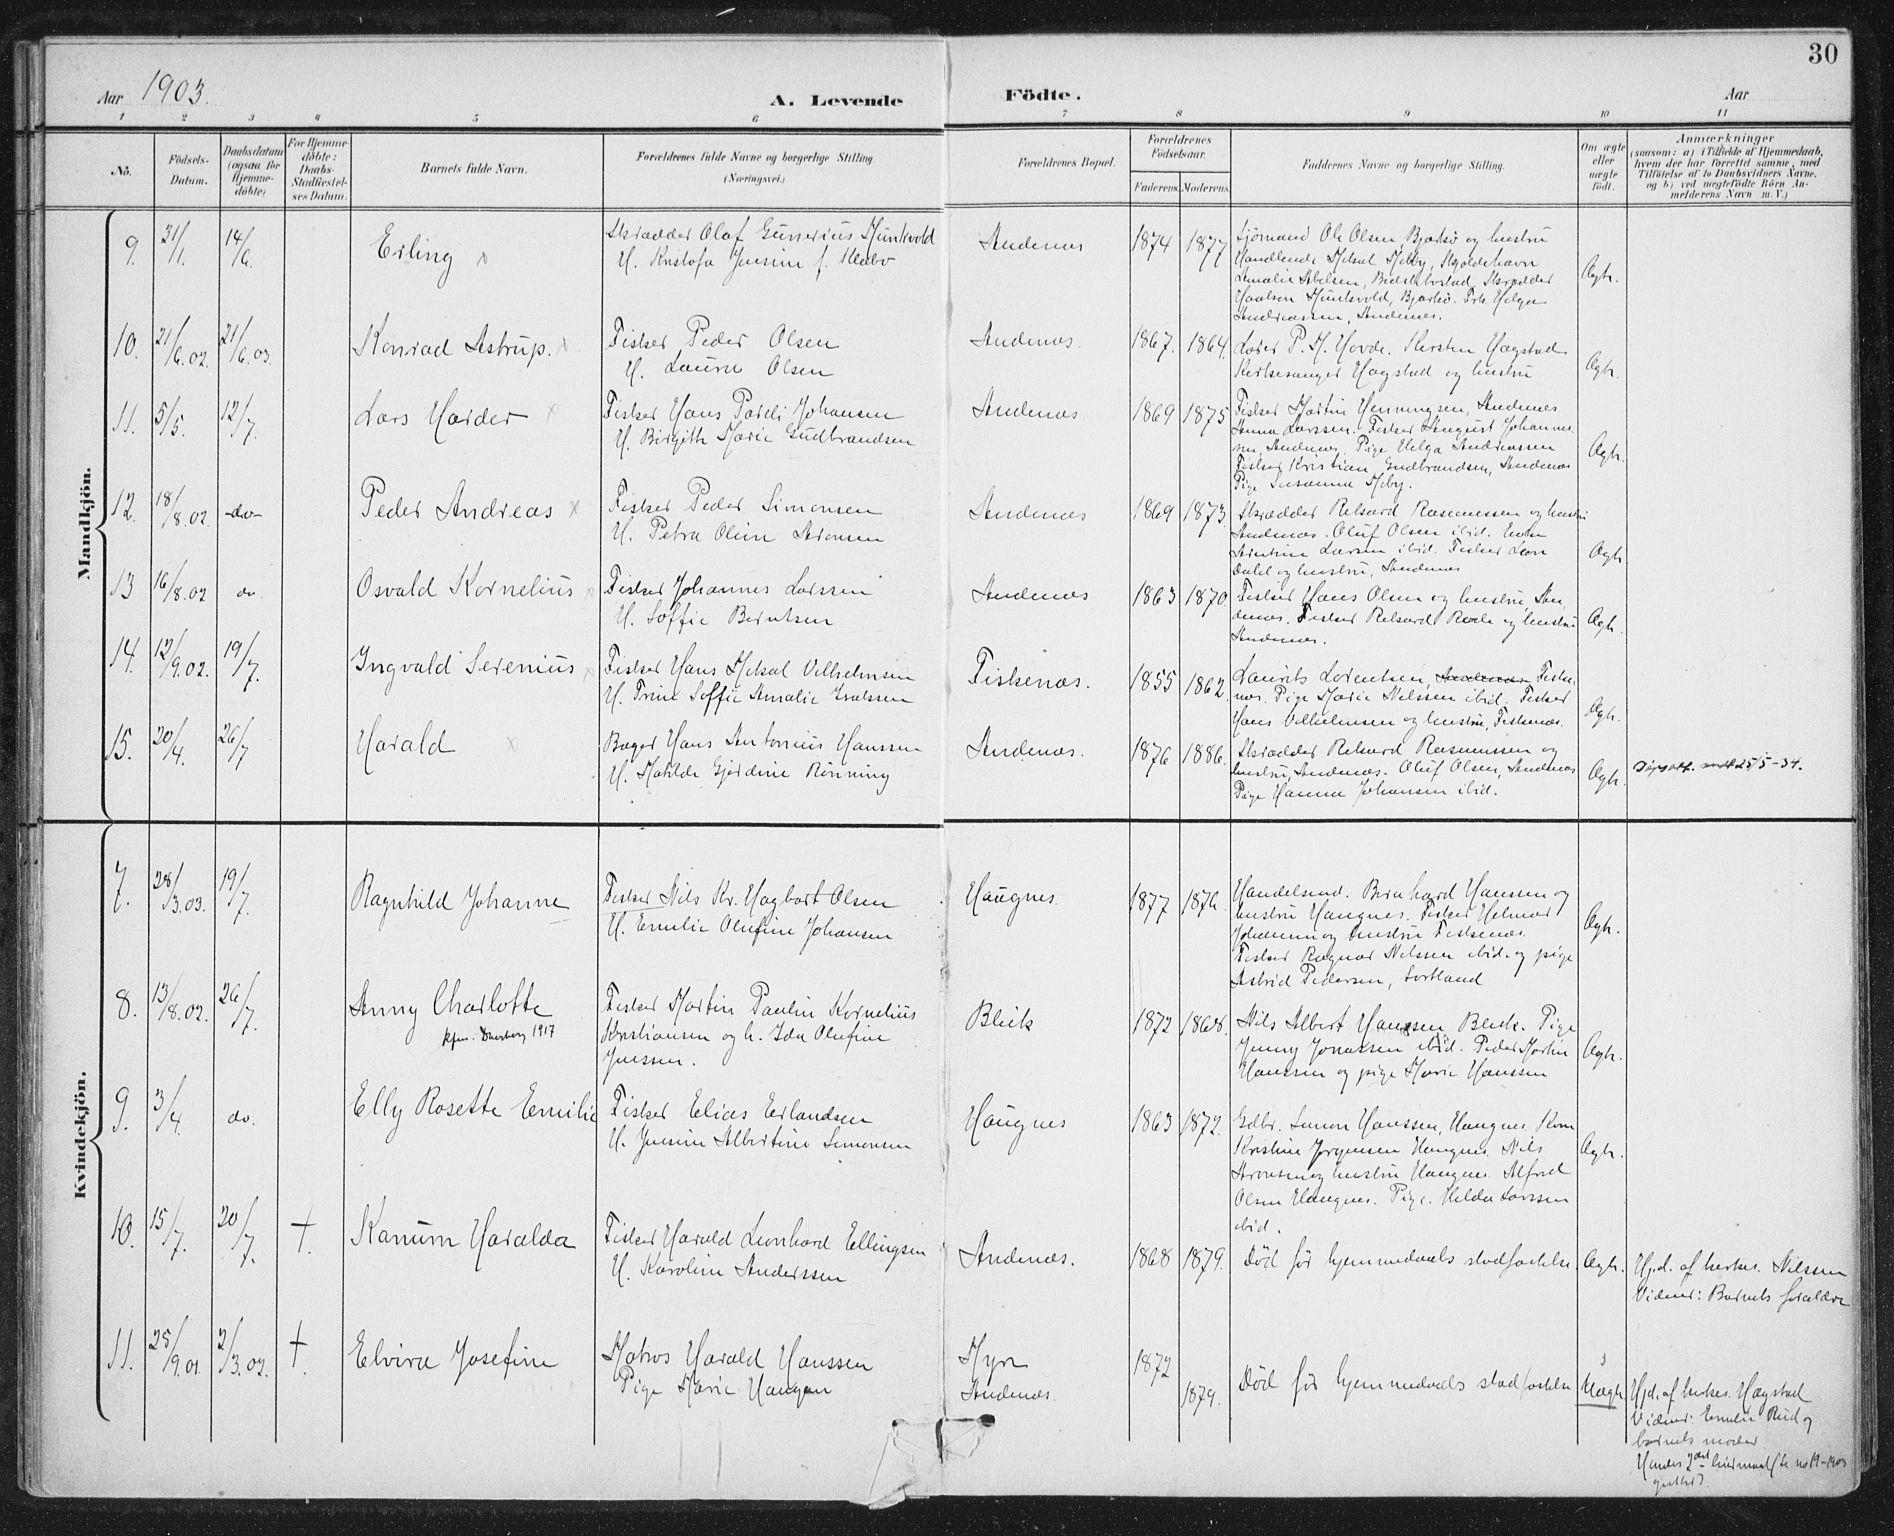 30
Aar 1903.
A. Levende
Födte.
Aar
1 2 3 4 5 6 7 8 9 10 11
No.
Födsels-Datum.
Daabsdatum (ogsaa for Hjemmedöbte)
For Hjemmedöbte: Daabs-Stadfæstelses Datum.
Barnets fulde Navn.
Forældrenes fulde Navne og borgerlige Stilling (Næringsvei.)
Forældrenes Bopæl.
Forældrenes Födselsaar.
Faderens. Moderens.
Faddernes Navne og borgerlige Stilling.
Om ægte eller uægte födt.
Anmærkninger
(saasom: a) i Tilfælde af Hjemmedaab, hvem der har forrettet samme, med Tilföielse af to Daabsvidners Navne, og b) ved uægtefödte Börn Anmelderens Navn m. V.)
Mandkjön.
9. 31/1. 14/6. Erling x
Skrædder Olaf Gunerius Munkvold
H. Kristofa Jensine f.
Andenæs 1874 1877
Sjømand Ole Olsen, Bjarkø og hustru
Handlende Meby, Skoldehavn
Amalie Abelsen, Skrædder
Munkvold, Bjarkø. Frk. Helga
Andreassen, Andenæs.
Ægte.
10. 21/6.02 21/6.03 Konrad Astrup. x
Fisker Peder Olsen
H. Laura Olsen
Andenæs. 1867. 1864.
Lærer P. M. Hovde. Kirsten Hagstad
Kirkesanger Hagstad og hustru
Ægte.
11. 5/5. 12/7. Lars Harder x
Fisker Hans Pareli Johansen
H. Birgith Marie Gudbrandsen
Andenæs 1869 1875
Fisker Martin Henningsen, Andenæs
Anna Larssen. Fisker August Johannes
sen, Andenæs, Pige Helga Andreassen
Fisker Kristian Gudbrandsen, Andenæs
Pige Susanna Meby.
Ægte.
12. 18/8.02 -do- Peder Andreas x
Fisker Peder Simonsen
H. Petra Oline Aronsen
Andenæs 1869 1873
Skrædder Rikard Rasmussen og hustru
Andenæs. Oluf Olsen ibid. Enke
Larsen ibid. Fisker
Dahl og hustru, Andenæs
Ægte
13 16/8.02 do. Osvald Kornelius x
Fisker Johannes Larssen
H. Soffie Berntsen
Andenæs 1863 1870
Fisker Hans Olsen og hustru An
denæs. Fisker Rikard og hustru
Andenæs.
Ægte.
14. 12/9.02. 19/7. Ingvald Serenius x
Fisker Hans Mikal Vilhelmsen
H. Trine Soffie Amalie
Fiskenæs. 1855 1862
Laurits Lorentsen, Andenæs Fiske
næs. Pige Marie Nilssen ibid. Fisker
Hans Vilhelmsen og hustru, Fiskenæs.
Ægte.
15. 20/4. 26/7 Harald x
Bager Hans Antonius Hanssen
H. Matilde Gjerdine Rönning
Andenæs. 1876 1886.
Skrædder Rikard Rasmussen og
hustru, Andenæs. Oluf Olsen, Andenæs
Pige Hanna Johansen ibid.
Ægte.
25/5-34.
Kvindekjön.
7. 28/3.03. 19/7. Ragnhild Johanne
Fisker Nils Kr. Hagbart Olsen
H. Emilie Olufine Johansen
Haugnes. 1877 1876.
Handelsmd. Bernhard Hanssen og
hustru Haugnes. Fisker Helmer
Johansen og hustru Fiskenæs.
Fisker Ragnar Nilssen ibid. og pige
Astrid Pedersen, Sortland
Ægte.
8. 13/8.02. 26/7. Anny Charlotte
kfm. 1917
Fisker Martin Paulin Kornelius
Kristiansen og h. Ida Olufine
Jenssen.
Bleik 1872 1868.
Nils Albert Hanssen, Bleik. Pige
Jenny Jonassen ibid. Peder Martin
Hanssen og pige Marie Hanssen
Ægte.
9. 3/4. do. Elly Rosette Emilie
Fisker Elias Erlandsen
H. Jensine Albertine Simonsen
Haugnes 1863 1872.
Gdbr. Simon Hanssen, Haugnes. Kone
Kristine Jørgensen Haugnes. Nils
Aronsen og hustru Haugnes. Alfred
Olsen Haugnes. Pige. Hilda Larssen
ibid.
Ægte.
10. 15/7. 20/7. †. Kanum Haralda
Fisker Harald Leonhard Ellingsen
H. Karoline Anderssen
Andenæs. 1868 1879.
Død før hjemmedaabs stadfæstelse.
Ægte.
Hjd. af kirkes. Nilssen
Vidner: Barnets forældre
11. 25/9.01 2/3.02. †. Elvira Josefine
Matros Harald Hanssen
Pige Marie Haugen
Myre
Andenæs. 1872
1879.
Død før hjemmedaabs stadfæstelse
3
Uægte
Hjd. af kirkes. Hagstad
Vidner: Emilie Rud og
barnets moder
Hendes 2det (se no 19-1903